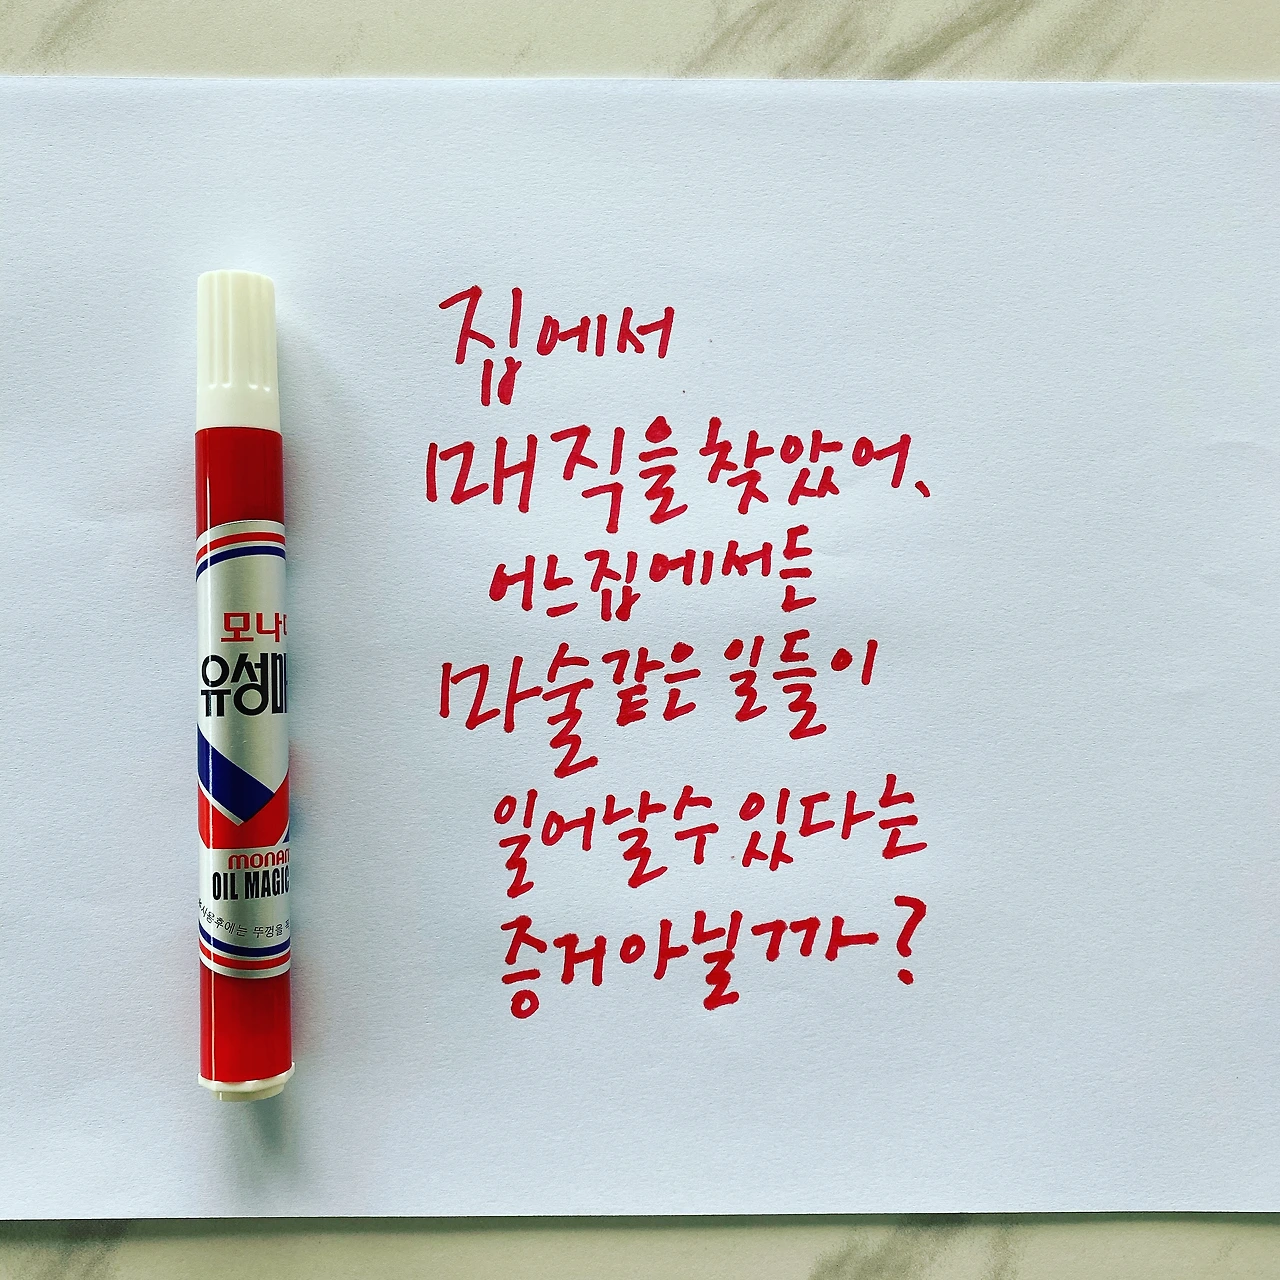 모나미
유성매
monami
OIL MAGIC
사용후에는 뚜껑을 꼭
집에서
매직을 찾았어.
어느집에서든
마술같은 일들이
일어날수 있다는
증거 아닐까?